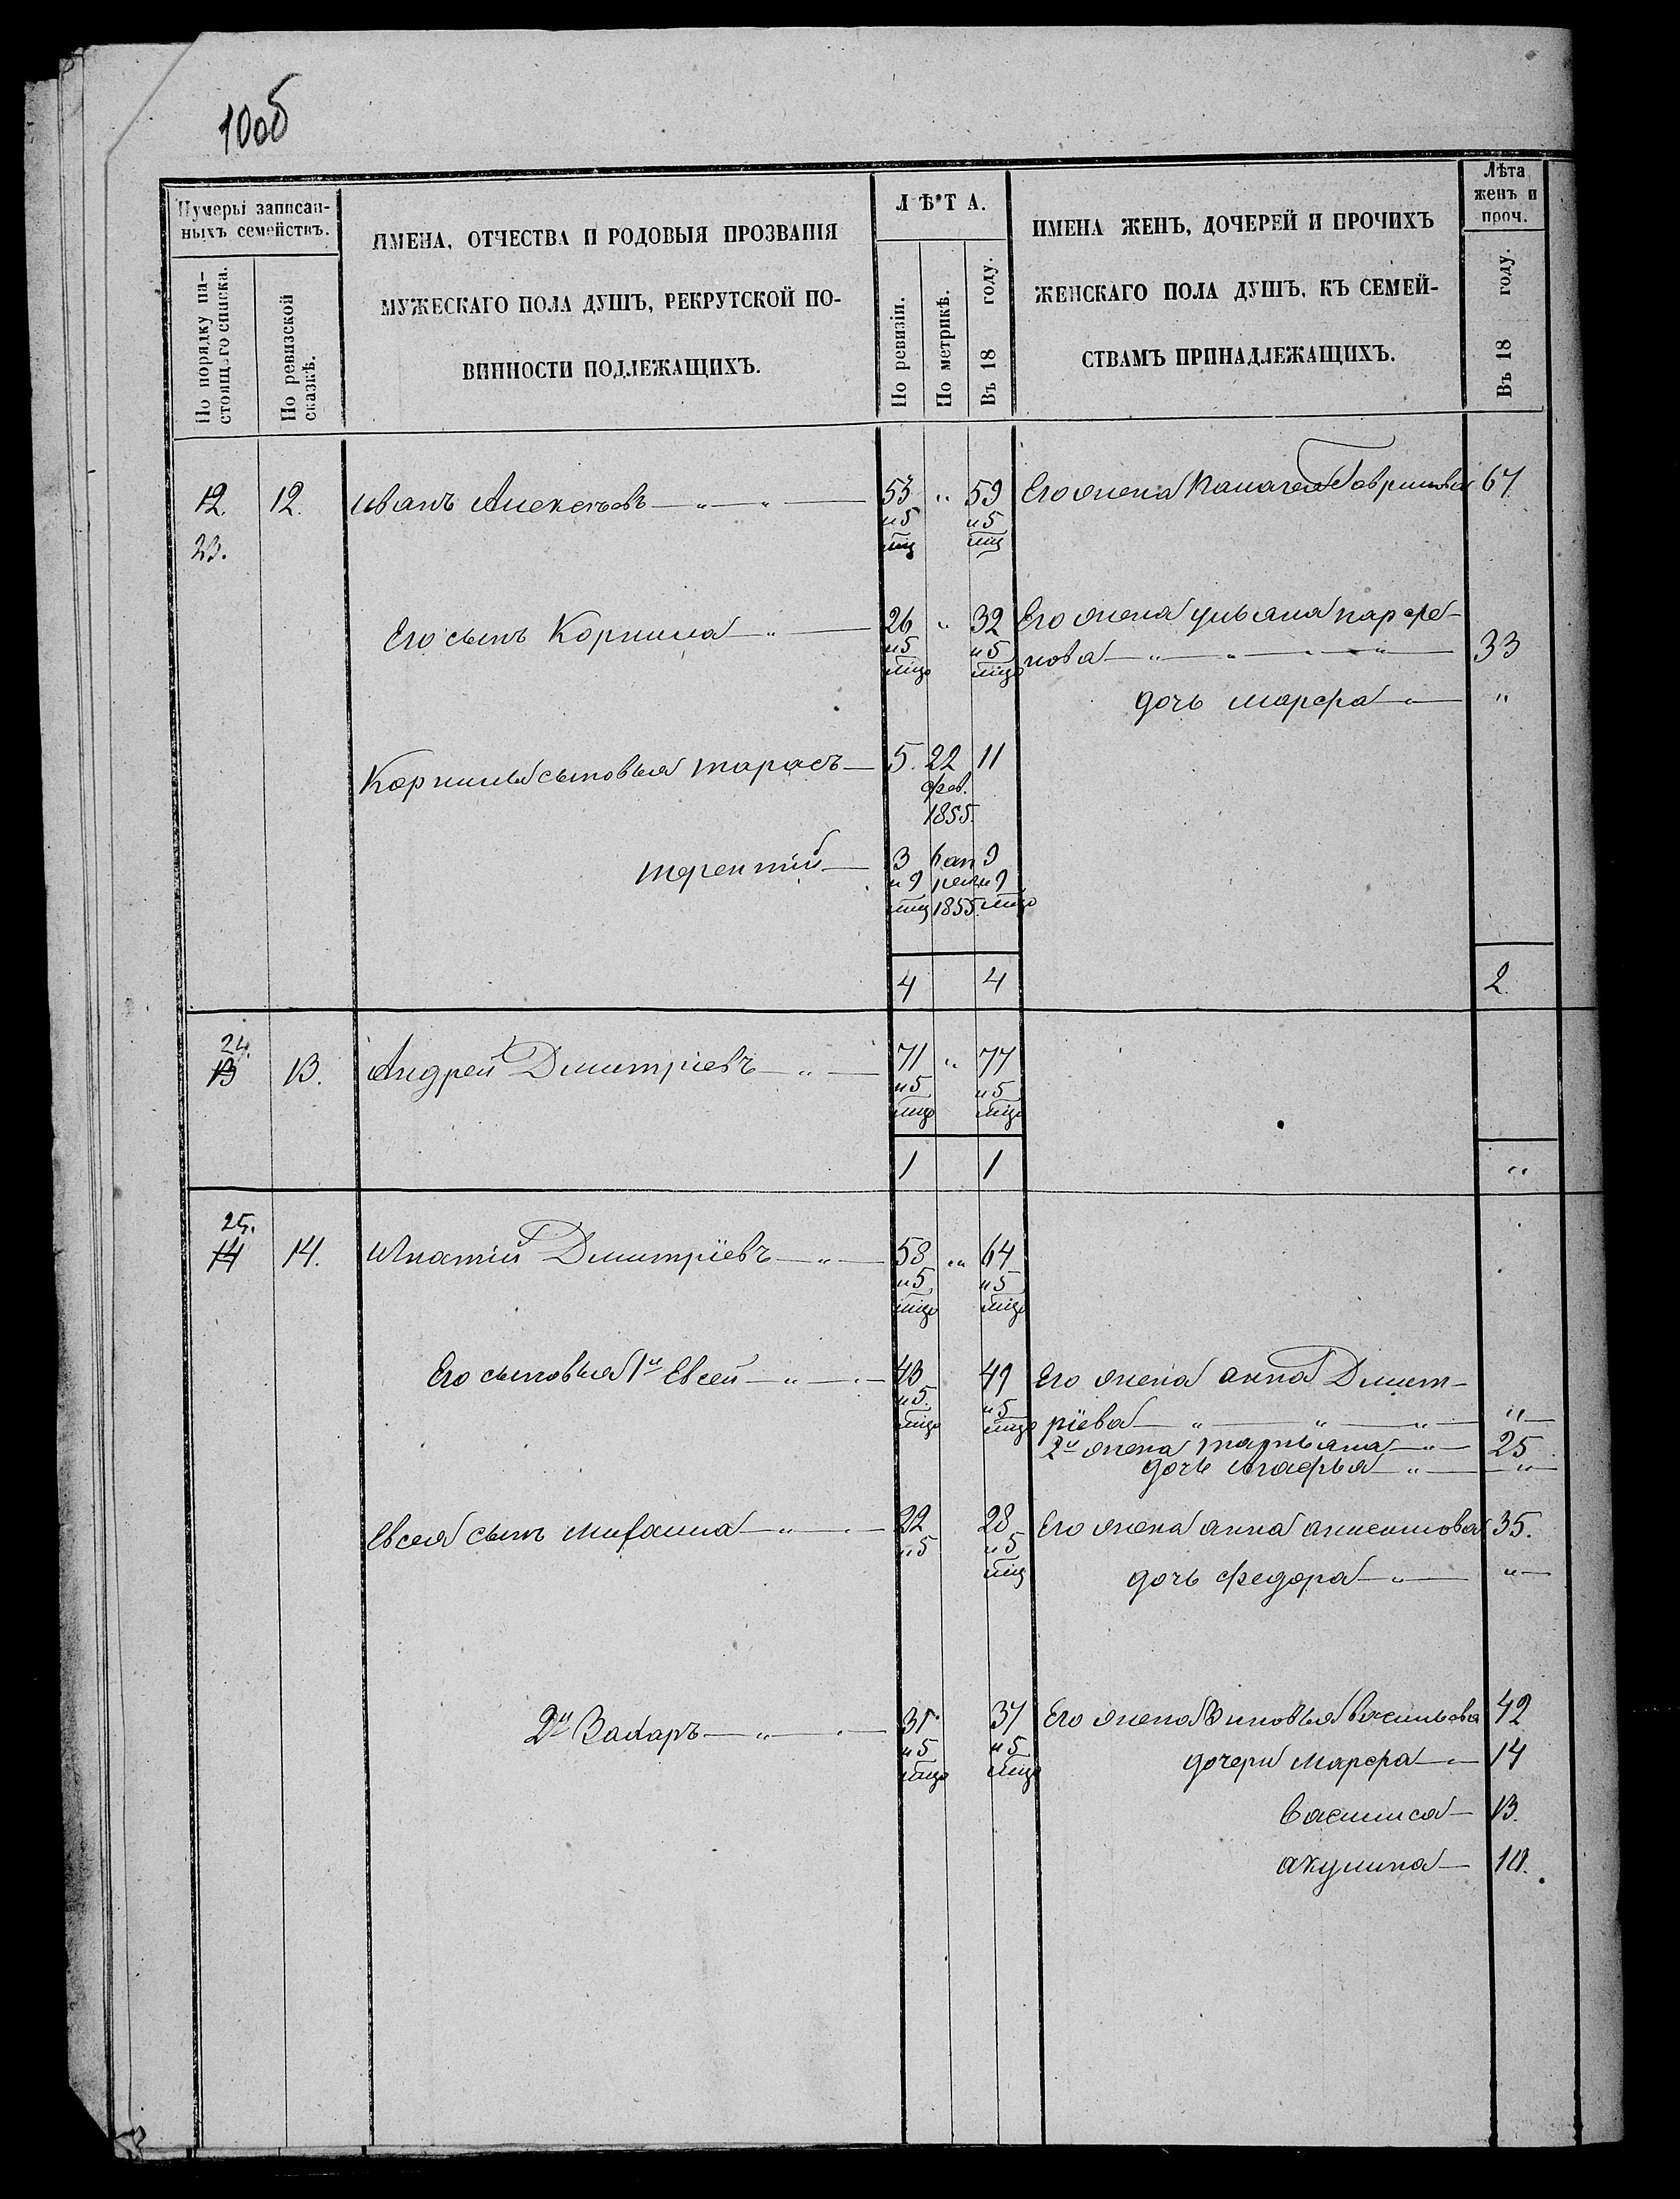 10об
Нумеры записан-
ныхъ семействъ.
По порядку на-
стоящаго списка.
По ревизской
сказкѣ.
ИМЕНА, ОТЧЕСТВА И РОДОВЫЯ ПРОЗВАНІЯ
МУЖЕСКАГО ПОЛА ДУШЪ, РЕКРУТСКОЙ ПО-
ВИННОСТИ ПОДЛЕЖАЩИХЪ.
ЛѢТА.
По ревизіи.
По метрикѣ.
Въ 18 году.
ИМЕНА ЖЕНЪ, ДОЧЕРЕЙ И ПРОЧИХЪ
ЖЕНСКАГО ПОЛА ДУШЪ, КЪ СЕМЕЙ-
СТВАМЪ ПРИНАДЛЕЖАЩИХЪ.
Лѣта
женъ и
проч.
Въ 18 году.
12. 12. Иванъ Алексѣевъ — " — " — 53 " 59 Его жена Гаврилова 67
и 5 и 5
23. мц мц
Его сынъ Корнила — " — 26 " 32 Его жена ульяна парфе-
и 5 и 5 нова — " — " — " — " — 33
мцо мцо
дочь марфа — " — "
Корнилы сыновья тарасъ — 5. 22 11
фев.
1855.
терентій — 3 6 ап 9
и 9 реля и 9
мцо 1855. мцо
4 4 2.
24.
13 13. Андрей Дмитріевъ — " — 71 " 77
и 5 и 5
мцо мцо
1 1 "
25.
14 14. Ипатій Дмитріевъ — " — 58 " 64
и 5 и 5
мцо мцо
Его сыновья 1й Евсей — " — " — 43 49 Его жена анна Дмит-
и 5. и 5
мцо мцо ріева — " — " — " — " —
2я жена татьяна — " — 25
дочь агафья — " — " —
Евсея сынъ михаила — " — " — 22 28 Его жена анна 35.
и 5 и 5
мц дочь федора — " — " —
2й Захаръ — " — " — 31 37 Его жена Зиновья васильева 42
и 5 и 5
мцо мцо дочери марфа — " — 14
василиса — 13.
акулина — 10.